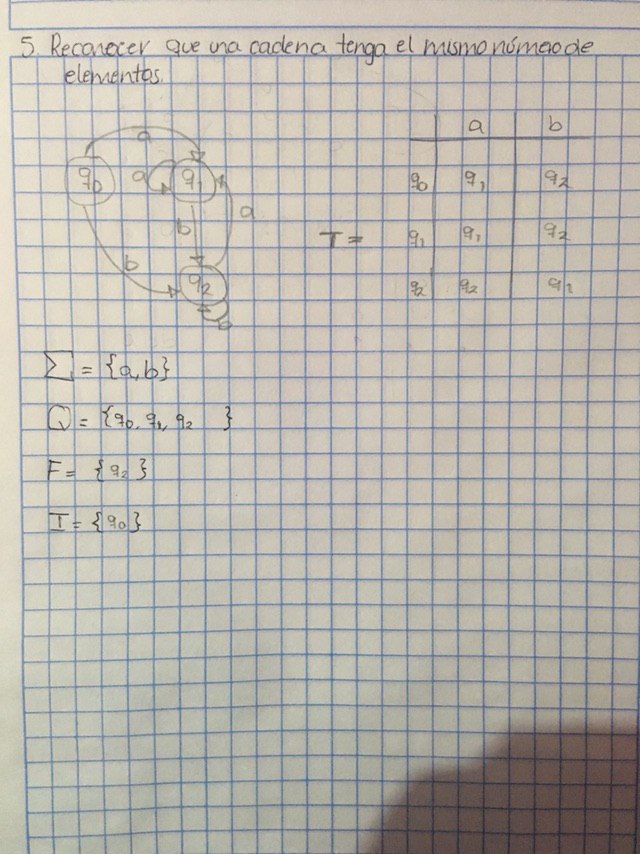 5. Reconocer que una cadena tenga el mismo número de
elementos.
a
q0 a q1
b a
b
q2
b
a b
q0 q1 q2
T = q1 q1 q2
q2 q2 q1
Σ = {a, b}
Q = {q0, q1, q2 }
F = {q2}
I = {q0}